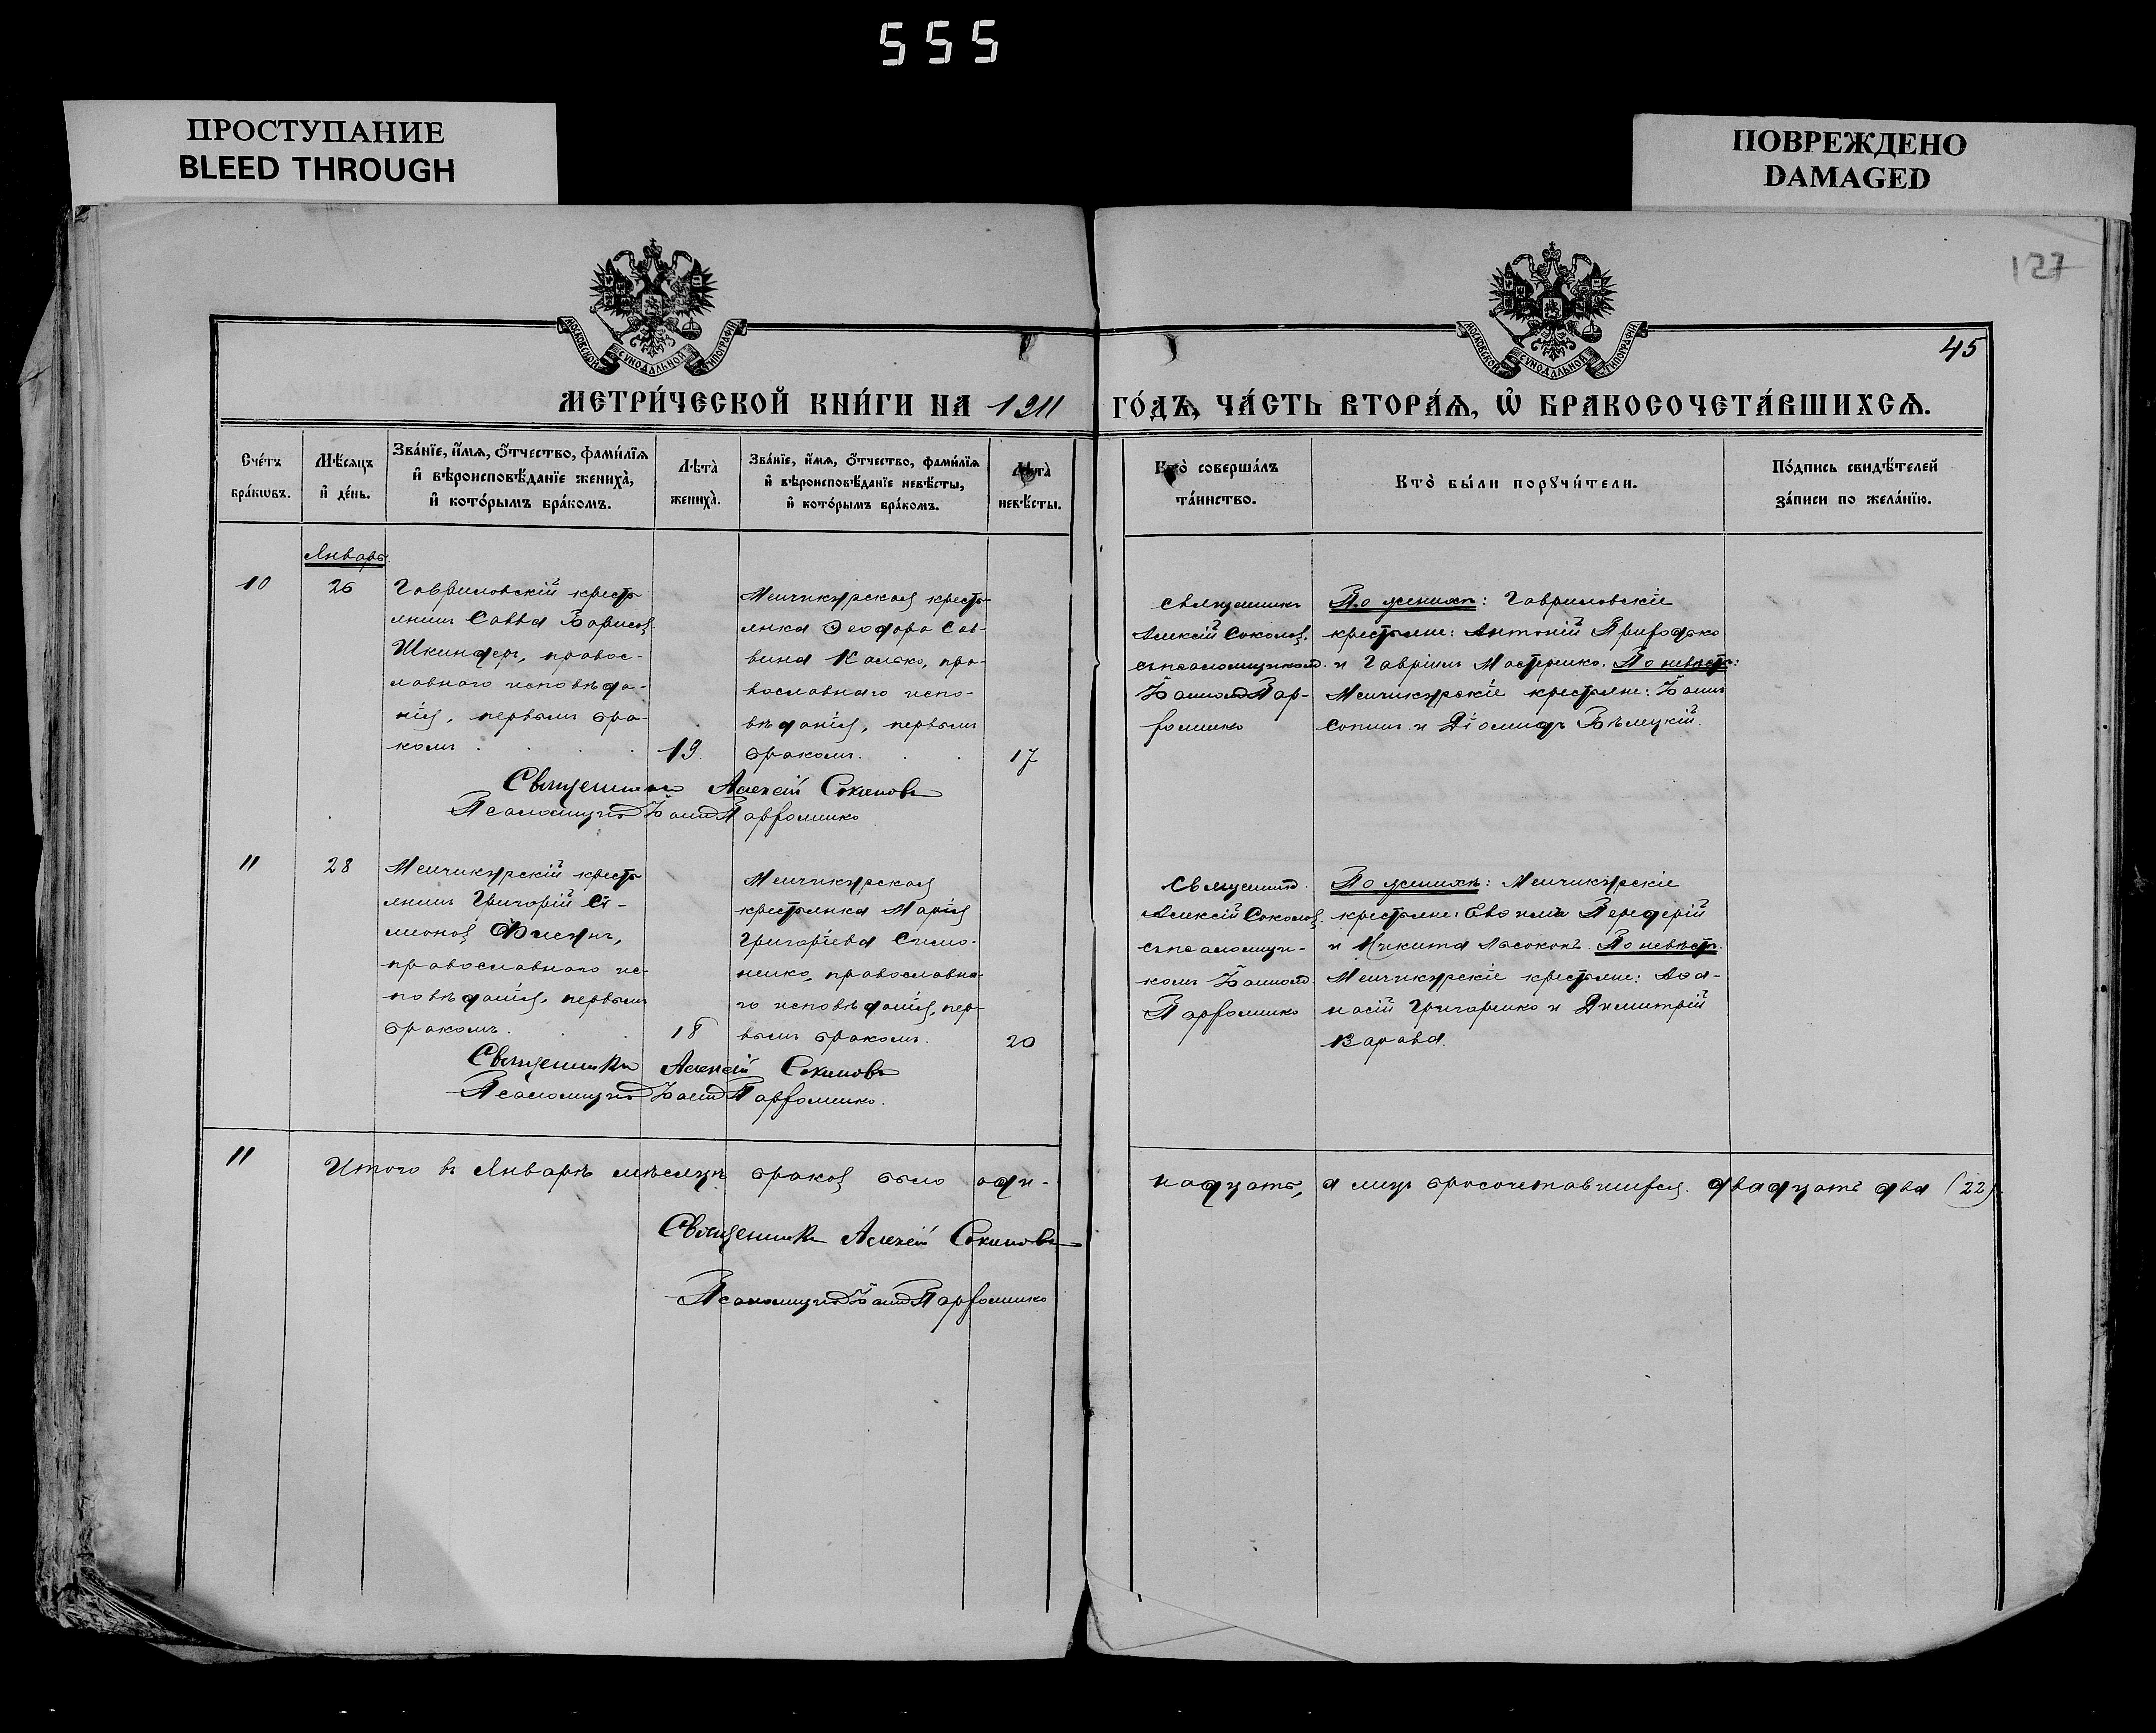 555
ПРОСТУПАНИЕ
BLEED THROUGH
ПОВРЕЖДЕНО
DAMAGED
127
45
МОСКОВСКОЙ СѴНОДАЛЬНОЙ ТИПОГРАФІИ
МОСКОВСКОЙ СѴНОДАЛЬНОЙ ТИПОГРАФІИ
МЕТРИ́ЧЕСКОЙ КНИ́ГИ НА 1911 ГО́ДЪ, ЧА́СТЬ ВТОРА́Ѧ, Ѡ҆ БРАКОСОЧЕТА́ВШИХСѦ.
Сче́тъ бра́кѡвъ.
Мѣ́сѧцъ и҆ де́нь.
Зва́нїе, и҆́мѧ, ѻ҆́тчество, фами́лїѧ
и҆ вѣроисповѣ́данїе жениха̀,
и҆ кото́рымъ бра́комъ.
Лѣта̀ жениха̀.
Зва́нїе, и҆́мѧ, ѻ҆́тчество, фами́лїѧ
и҆ вѣроисповѣ́данїе невѣ́сты,
и҆ кото́рымъ бра́комъ.
Лѣта̀ невѣ́сты.
Кто̀ соверша́лъ
та́инство.
Кто̀ бы́ли порꙋчи́тели.
По́дпись свидѣ́телей
за́писи по жела́нїю.
Январь.
10
26
Гавриловскій кресть-
янинъ Савва Борисов.
Шкиндеръ, правос-
лавнаго исповѣда-
нія, первымъ бра-
комъ
19.
Менчикурская кресть-
янка Ѳеодора Сав-
вина Калько, пра-
вославнаго испо-
вѣданія, первымъ
бракомъ.
17
Священникъ
Алексій Соколов.
съ псаломщиком.
Іоанном Пар-
фоменко
По женихѣ: Гавриловскіе
крестьяне: Антоній Приходько
и Гавріилъ Мастренко. По невѣстѣ:
Менчикурскіе крестьяне: Іоаннъ
Сопин и Діомидъ Бѣлецкій.
Священникъ Алексій Соколовъ
Псаломщикъ Іоанн Парфоменко
11
28
Менчикурскій кресть-
янинъ Григорій Си-
меонов Фисунъ,
православнаго ис-
повѣданія, первымъ
бракомъ.
18
Менчикурская
крестьянка Марія
Григоріева Симо-
ненко, православна-
го исповѣданія, пер-
вымъ бракомъ.
20
Священник
Алексій Соколов.
съ псаломщи-
комъ Іоанном
Парфоменко
По женихѣ: Менчикурскіе
крестьяне: Евѳимій Передерій
и Никита Ласоконь. По невѣстѣ.
Менчикурскіе крестьяне: Аѳа-
насій Григоренко и Димитрій
Карава.
Священникъ Алексій Соколовъ
Псаломщикъ Іоанн Парфоменко.
11
Итого въ Январѣ мѣсяцѣ браков было оди-
надцать, а лицъ бросочетавшихся. двадцать два (22).
Священникъ Алексій Соколовъ
Псаломщикъ Іоанн Парфоменко